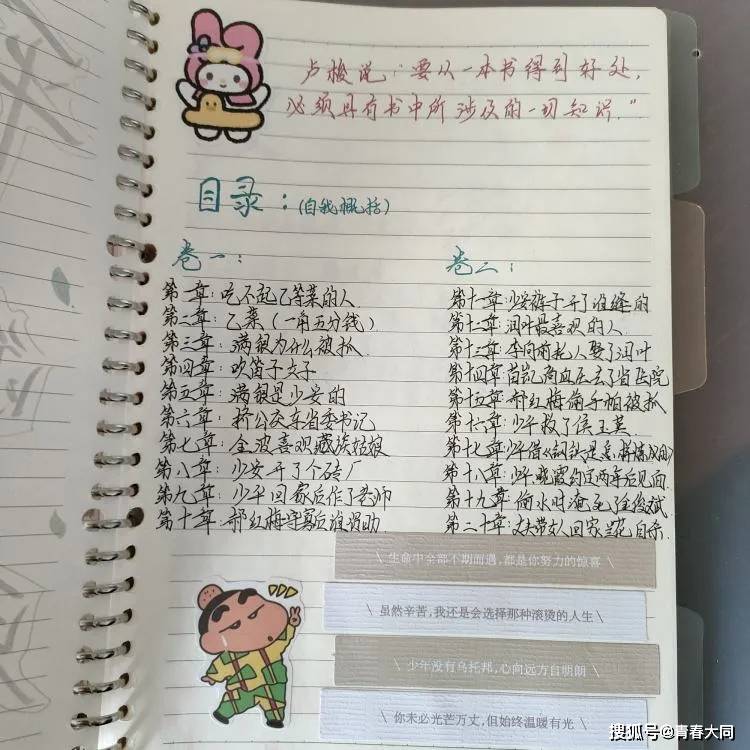 卢梭说:要从一本书得到好处,
必须具有书中所涉及的一切知识."
目录:(自我概括)
卷一:
第一章:吃不起乙等菜的人
第二章:乙菜(一角五分钱)
第三章:满银为什么被扒
第四章:吹笛子
第五章:满银是少安的
第六章:挤公交车省委书记
第七章:金波喜欢藏族姑娘
第八章:少安开了个砖厂
第九章:少平回家后作了老师
第十章:郝红梅守寡后谁助
卷二:
第十一章:少安裤子开了谁缝的
第十二章:润叶最喜欢的人
第十三章:李向前托人娶了润叶
第十四章:苗凯血后去了省医院
第十五章:郝红梅偷手帕被扒
第十六章:少平救了侯玉英
第十七章:少平借《钢铁是怎样炼成的》
第十八章:少平晓霞约定两年后见面
第十九章:偷水时淹死了金俊斌
第二十章:夫带女人回家兰花自杀.
\ 生命中全部不期而遇,都是你努力的惊喜 \
\ 虽然辛苦,我还是会选择那种滚烫的人生 \
\ 少年没有乌托邦,心向远方自明朗 \
\ 你未必光芒万丈,但始终温暖有光 \
搜狐号@青春大同